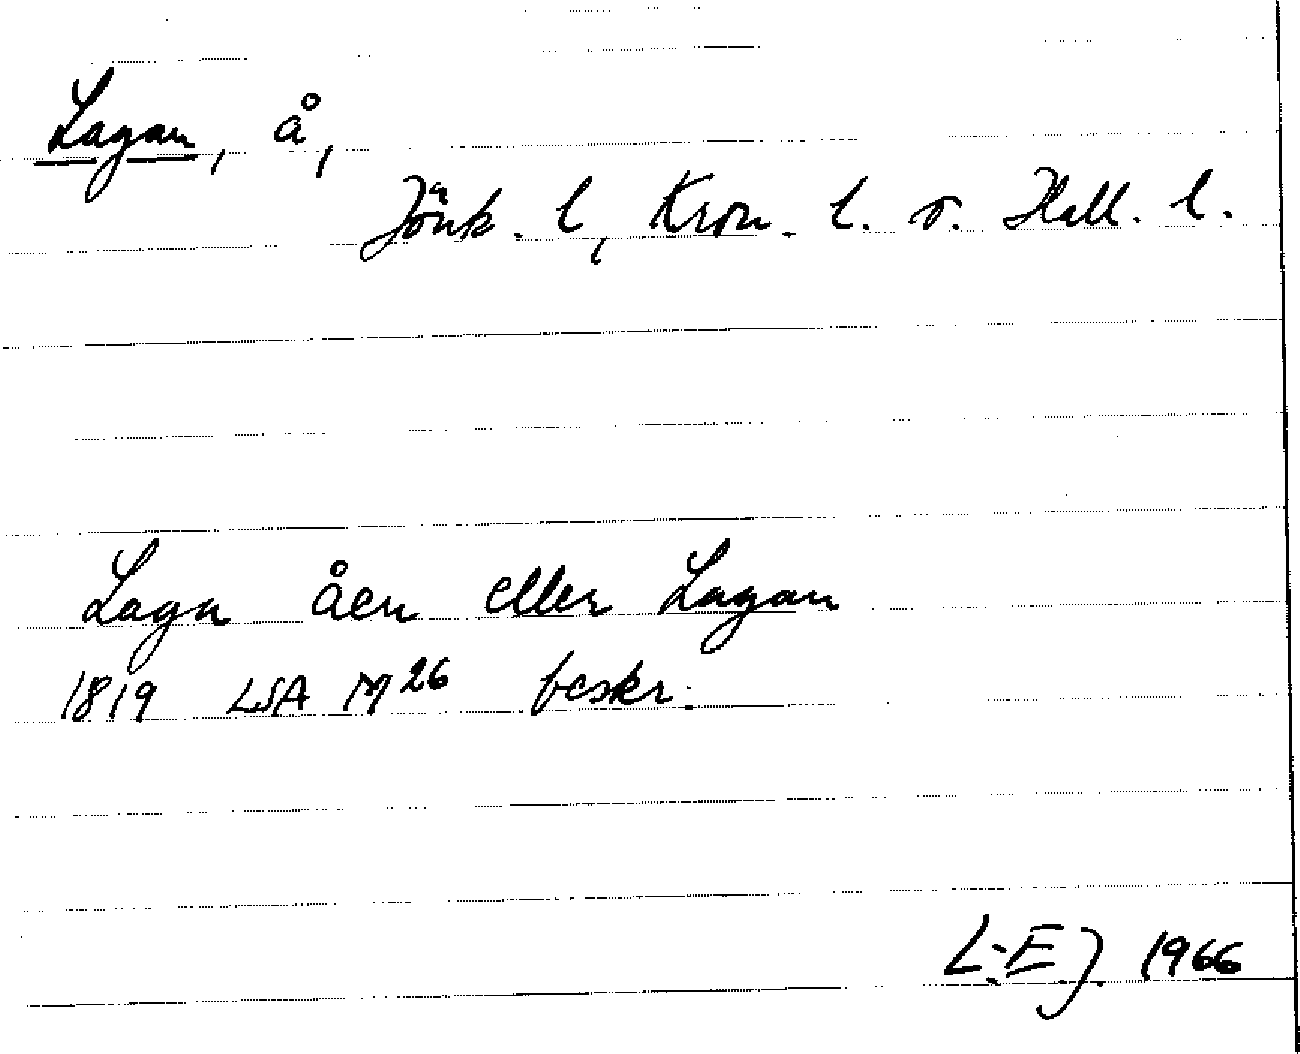 Lagan, å,
Jönk. l, Kron. l. o. Hall. l.
Laga åen eller Lagan
1819 LSA M26 beskr.
L-EJ 1966